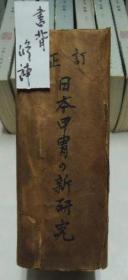 書背
修補
訂正
日本甲冑の新研究